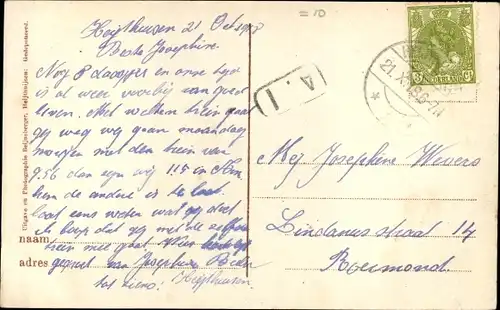 = 1D
Heijthuisen 21 Oct 1918
Beste Josephine
Nog 8 daagjes en onze tijd
is al weer voorbij van goed
leven. Met welken trein gaat
gij weg wij gaan maandag
morgen met den trein van
9.56 dan zijn wij 11 5 in
de andere is te laat
laat eens weten wat gij doet
Ik hoop dat gij met de zelfden
trein mee gaat
naam
adres gegroet van Josephine
tot ziens. Heijthuisen
Uitgave en Photographie Beijnsberger, Heijthuijsen. Gedeponeerd.
A. I
NEDERLAND
3 Ct
21.X.18.6-7N
Mej Josephine Wevers
Lindanusstraat 14
Roermond.